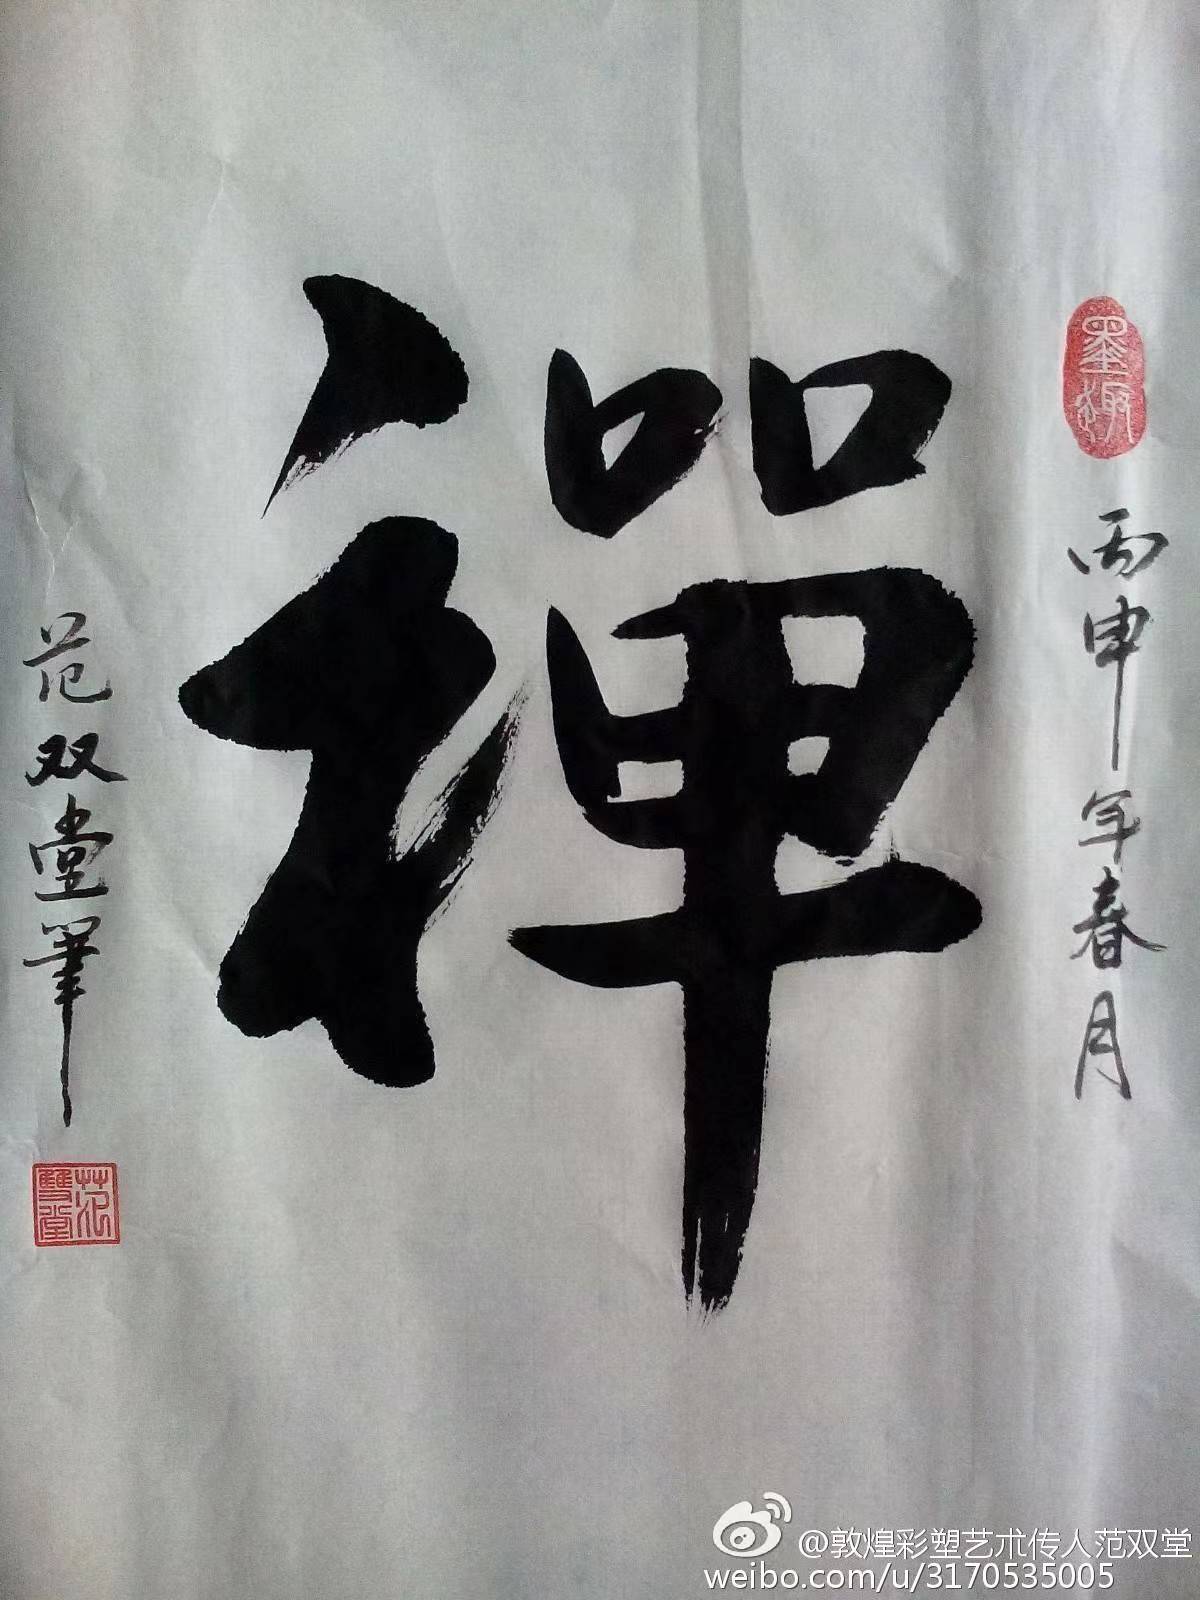 墨趣
丙申年春月
禪
范双堂筆
范雙堂
@敦煌彩塑艺术传人范双堂
weibo.com/u/3170535005